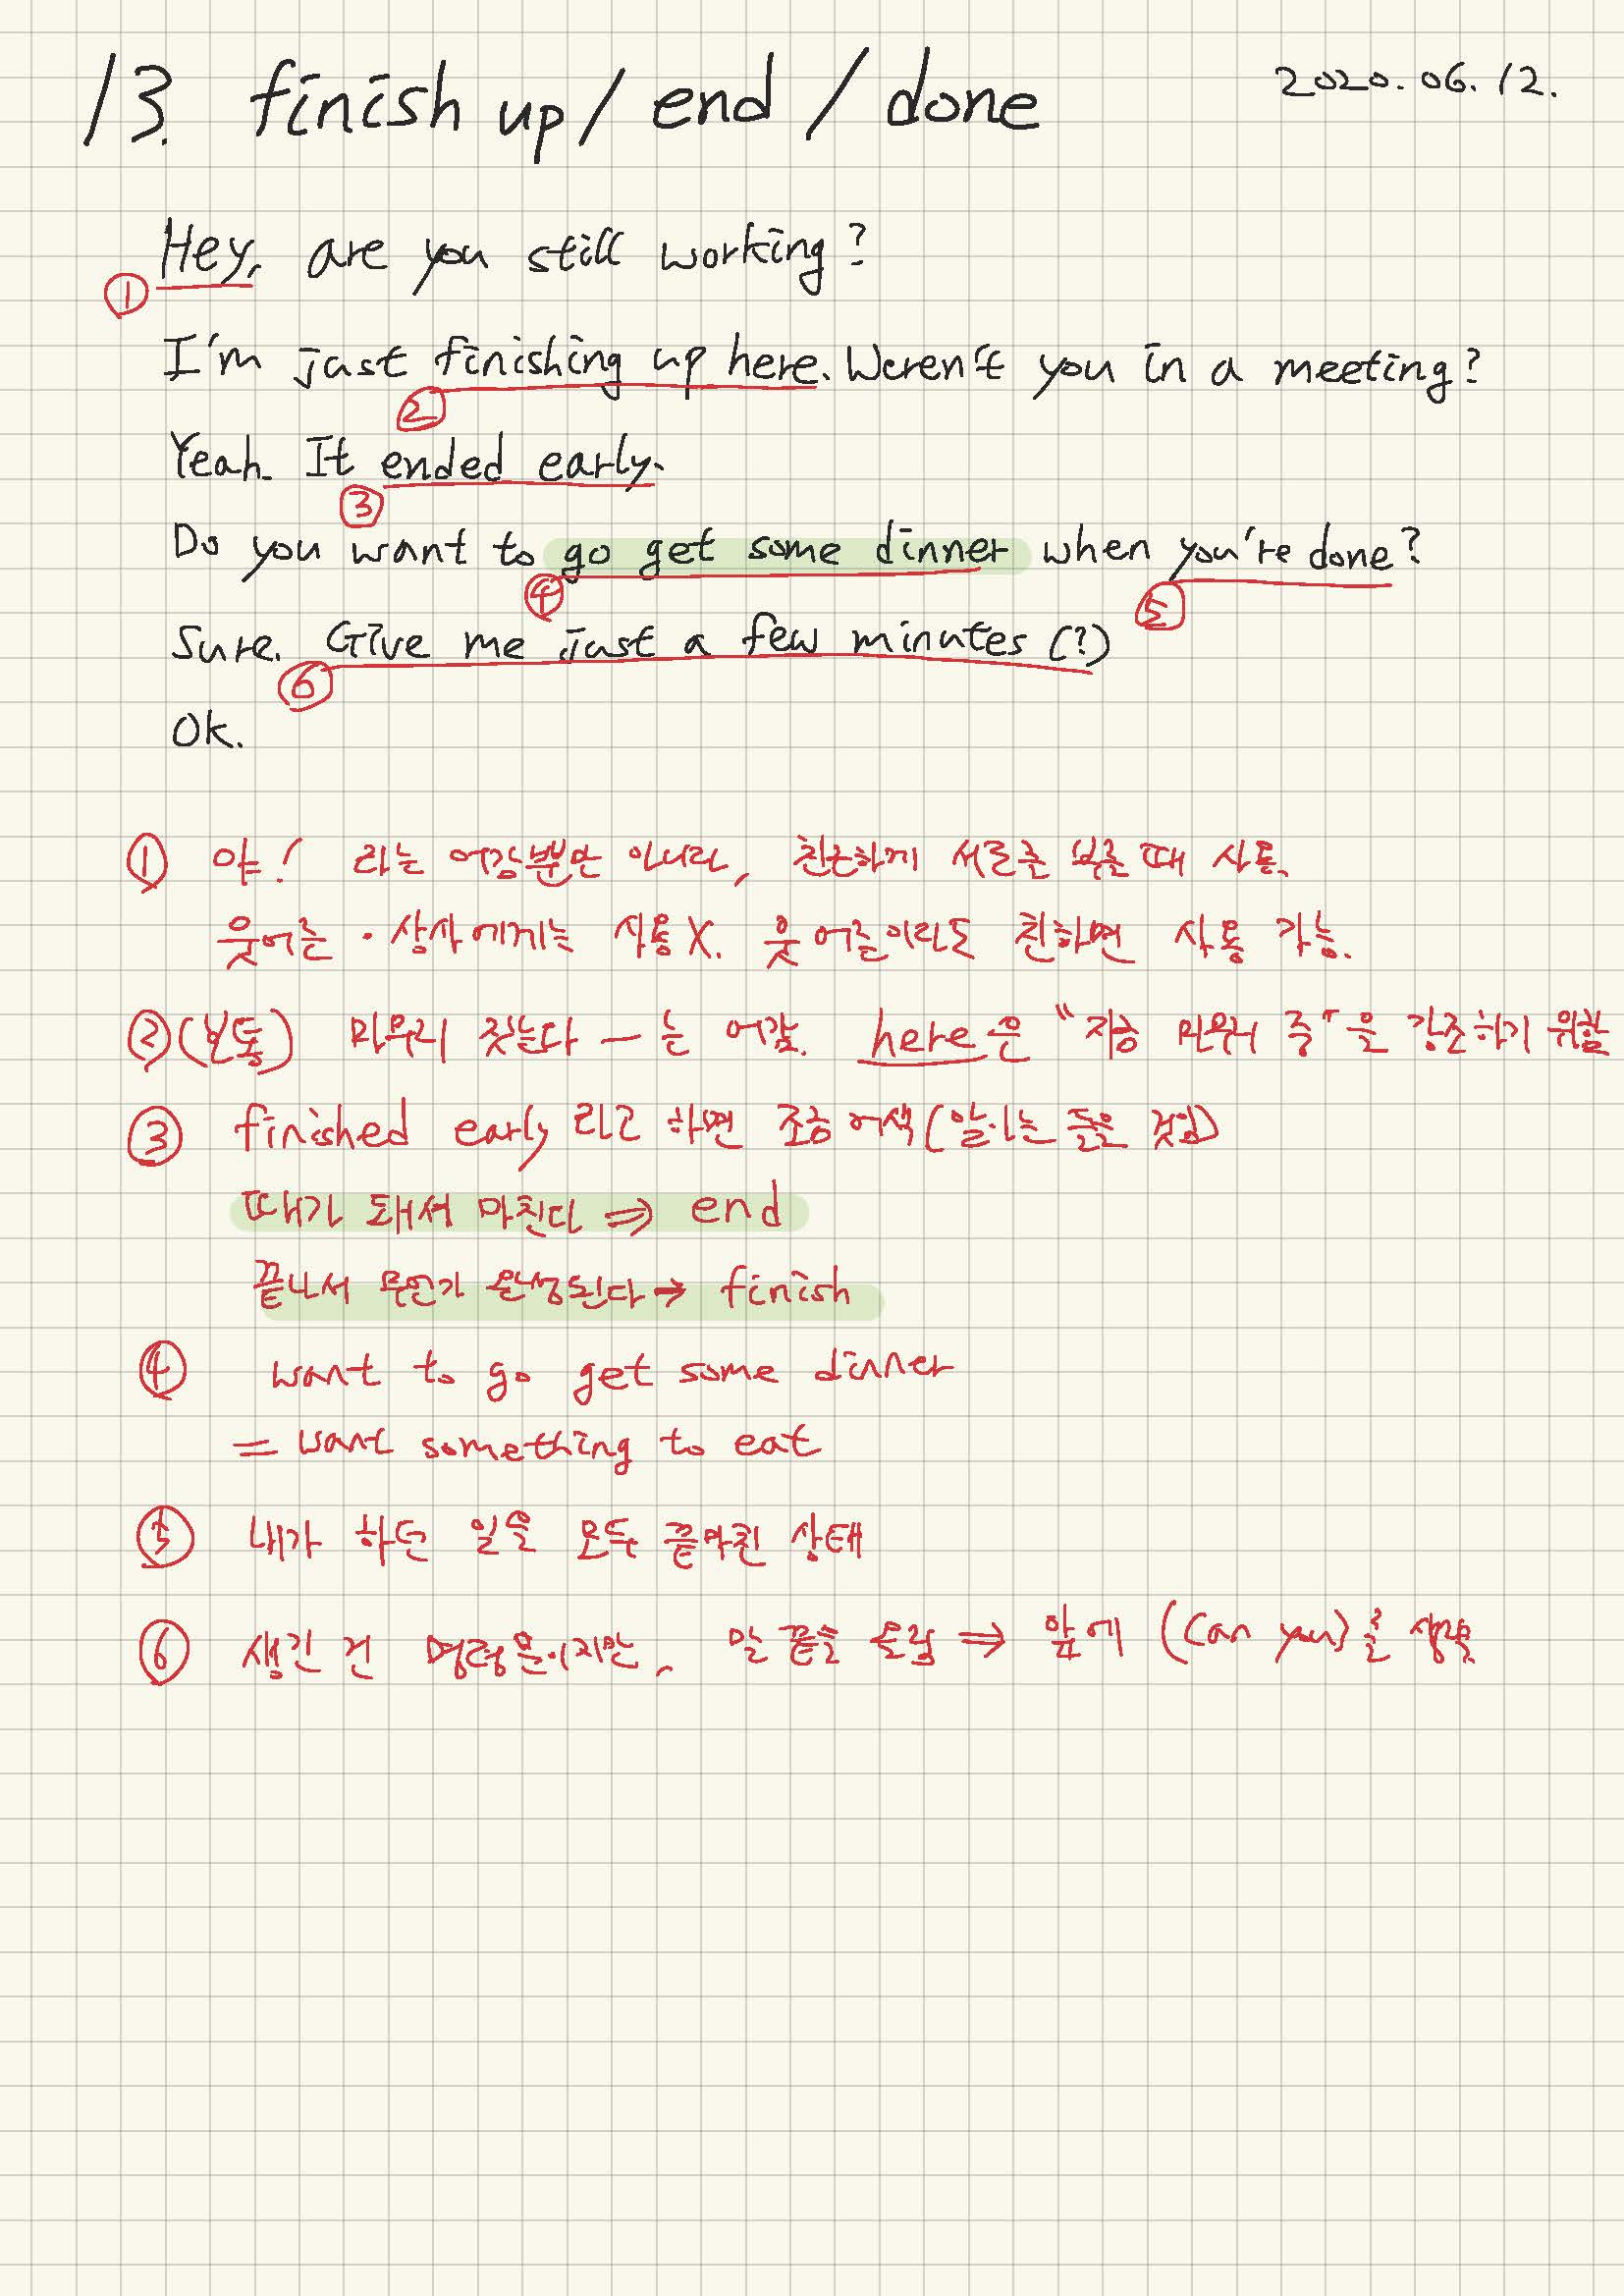 13. finish up / end / done
2020. 06. 12.
Hey, are you still working?
①
I'm just finishing up here. Weren't you in a meeting?
②
Yeah. It ended early.
③
Do you want to go get some dinner when you're done?
④ ⑤
Sure. Give me just a few minutes (?)
⑥
Ok.
① 야! 라는 어감뿐만 아니라, 친근하게 서로를 부를 때 사용.
웃어른 · 상사에게는 사용 X. 웃어른이라도 친하면 사용 가능.
② (보통) 마무리 짓는다 ㅡ 는 어감. here은 "지금 마무리 중"을 강조하기 위함
③ finished early 라고 하면 조금 어색 (알아는 들을 것임)
때가 돼서 마친다 ⇒ end
끝나서 무언가 완성된다 → finish
④ want to go get some dinner
= want something to eat
⑤ 내가 하던 일을 모두 끝마친 상태
⑥ 생긴 건 명령문이지만, 말 끝을 올림 ⇒ 앞에 (Can you)를 생략